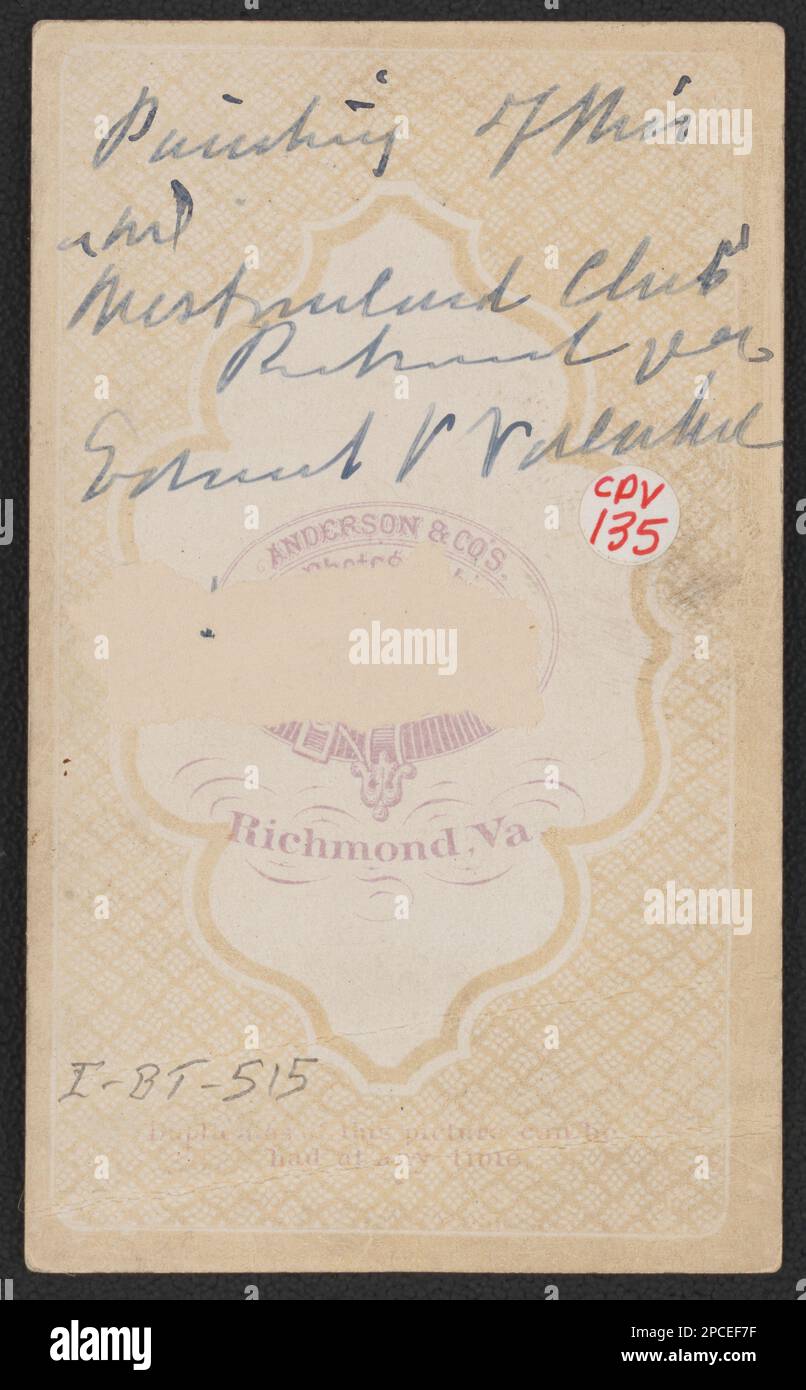 Painting of this
and
Westmoreland Club
Richmond Va
Edward V Valentine
CDV
135
ANDERSON & CO'S.
Photog
Richmond, Va
I-BT-515
Duplicates of this picture can be
had at any time.
a alamy
alamy
Image ID: 2PCEF7F
www.alamy.com